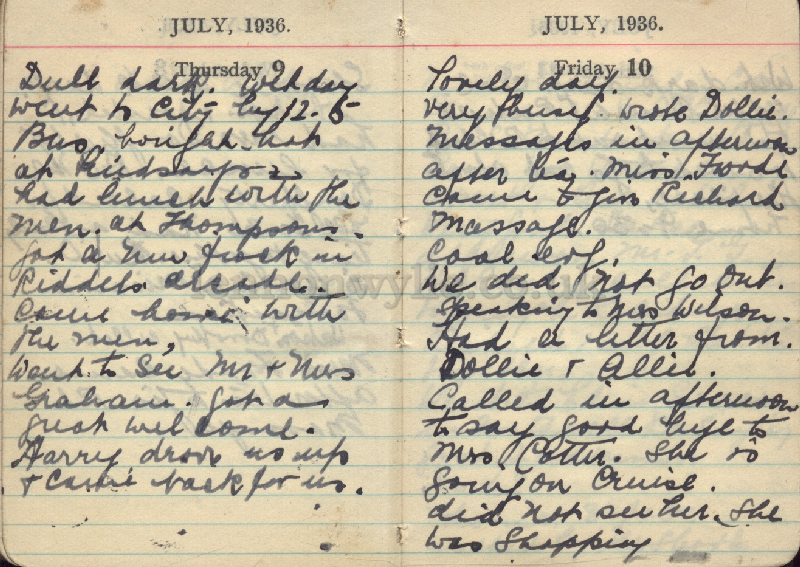 JULY, 1936.
Thursday 9
Dull dark. Wet day
went to City by 12.5
Bus, bought hat
at
had lunch with the
men. at Thompsons.
got a new frock in
Riddels arcade.
Came home with
the men,
Went to See Mr & Mrs
Graham. got a
great welcome.
Harry drove us up
& came back for us.
JULY, 1936.
Friday 10
lovely day.
very busy. wrote Dollie.
Messages in afternoon
after tea. Miss Forde
came to give Richard
Massage.
Cool evg.
We did not go out.
Speaking to Mrs Wilson.
Had a letter from.
Dollie & Allie.
Called in afternoon
to say good bye to
Mrs Cotter. She is
going on Cruise.
did not see her. She
was Shopping